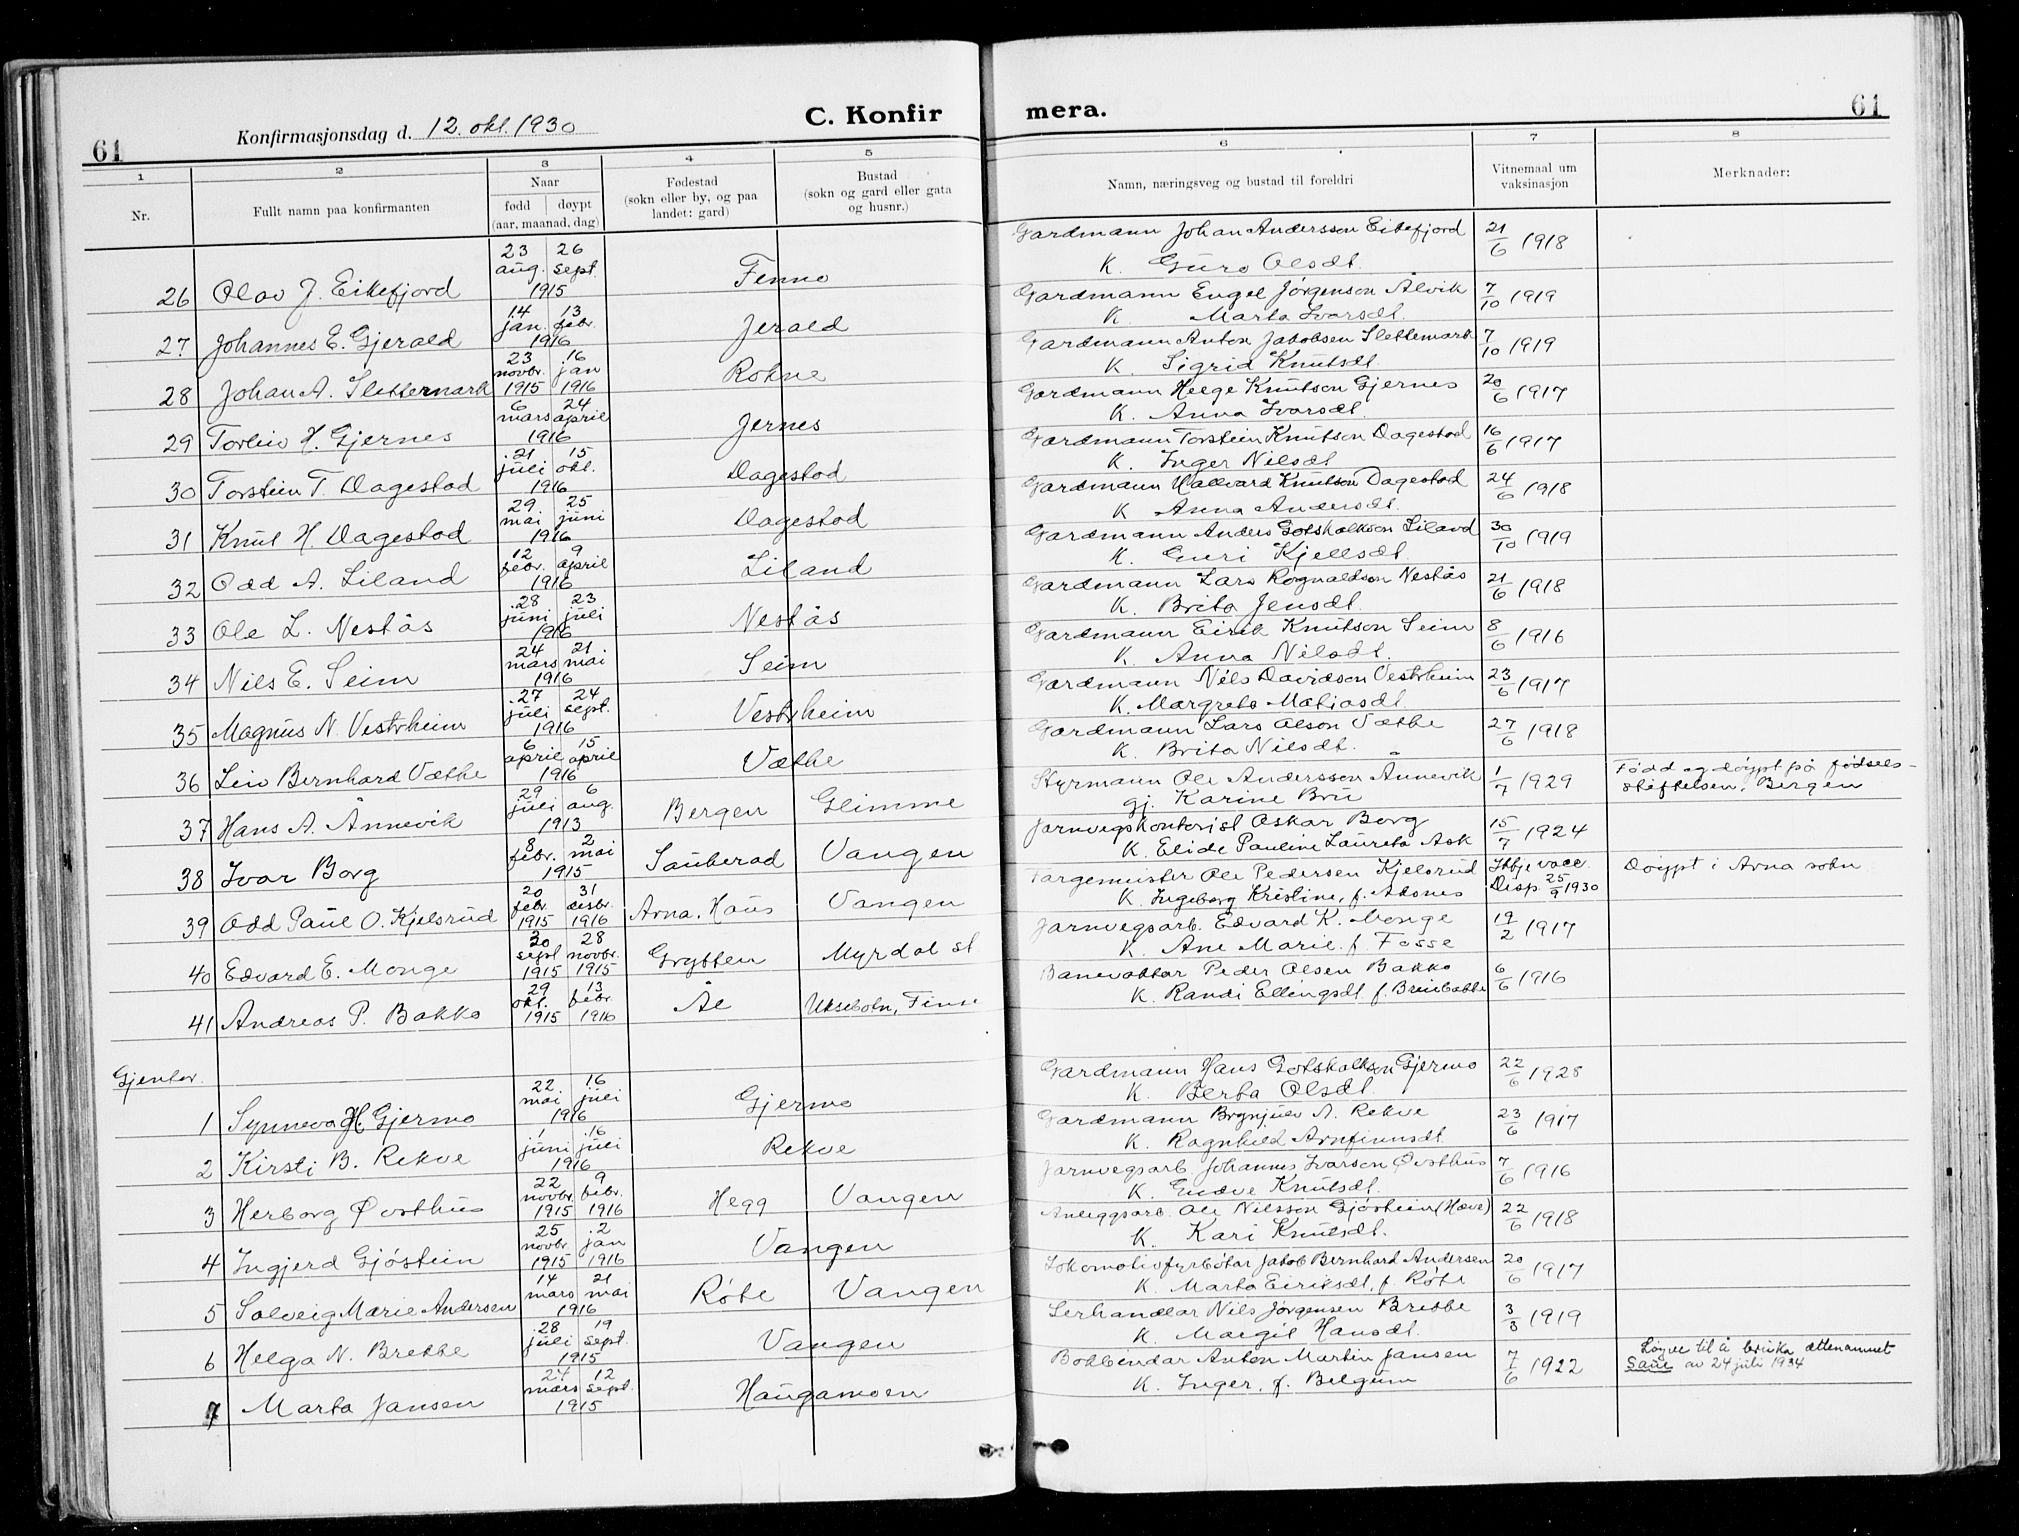 61 Konfirmasjonsdag d. 12. okt. 1930 C. Konfir mera. 61
1 2 3 4 5 6 7 8
Nr. Fullt namn paa konfirmanten Naar Fødestad Bustad Namn, næringsveg og bustad til foreldri Vitnemaal um vaksinasjon Merknader:
fødd døypt (sokn eller by, og paa landet: gard) (sokn og gard eller gata og husnr.)
(aar, maanad, dag)
26 Olav J. Eikefjord 23 aug. 26 sept. 1915 Fenno Gardmann Johan Andersson Eikefjord 21/6 1918
K. Guro Olsdt.
27 Johannes E. Gjerald 14 jan. 13 febr. 1916 Jerald Gardmann Engel Jørgenson Ålvik 7/10 1919
K. Marta Ivarsdt.
28 Johan A. Slettemark 23 novbr. 1915 16 jan 1916 Rokne Gardmann Anton Jakobsen Slettemark 7/10 1919
K. Sigrid Knutsdt.
29 Torleiv H. Gjernes 6 mars 24 april 1916 Jernes Gardmann Helge Knutson Gjernes 20/6 1917
K. Anna Ivarsdt.
30 Torstein T. Dagestad 21 juli 15 okt. 1916 Dagestad Gardmann Torstein Knutson Dagestad 16/6 1917
K. Inger Nilsdt
31 Knut H. Dagestad 29 mai 25 juni 1916 Dagestad Gardmann Hallvard Knutson Dagestad 24/6 1918
K Anna Andersdt.
32 Odd A. Liland 12 febr. 9 april 1916 Liland Gardmann Anders Gotskalkson Liland 30/10 1919
K. Guri Kjellsdt.
33 Ole L. Nestås 28 juni 23 juli 1916 Nestås Gardmann Lars Rognaldson Nestås 21/6 1918
K. Brita Jensdt.
34 Nils E. Seim 24 mars 21 mai 1916 Seim Gardmann Eirik Knutson Seim 8/6 1916
K. Anna Nilsdt.
35 Magnus N. Vestrheim 27 juli 24 sept. 1916 Vestrheim Gardmann Nils Davidson Vestrheim 23/6 1917
K. Margreta Matiasdt.
36 Leiv Bernhard Væthe 6 april 15 april 1916 Væthe Gardmann Lars Olson Væthe 27/6 1918
K. Brita Nilsdt.
37 Hans A. Ånnevik 29 juli 6 aug. 1913 Bergen Glimme Styrmann Ole Andersson Ånnevik 1/7 1929 Fødd og døypt på fødsels-
gj. Karine Bru stiftelsen, Bergen
38 Ivar Borg 8 febr. 2 mai 1915 Sauherad Vangen Jarnvegskontorist Oskar Borg 15/7 1924
K. Elide Pauline Laureta Ask
39 Odd Paul O. Kjelsrud 20 febr. 1915 31 desbr. 1916 Arna, Haus Vangen Fargemeister Ole Pedersen Kjelsrud Ikkje vacc. Døypt i Arna sokn
K. Ingeborg Kristine, f. Aksnes Disp. 25/9 1930
40 Edvard E. Monge 30 sept 1915 28 novbr. 1915 Grytten Myrdal st Jarnvegsarb. Edvard K. Monge 19/2 1917
K. Ane Marie f. Fosse
41 Andreas P. Bakko 29 okt. 1915 13 febr. 1916 Ål Uksebotn, Finse Banevaktar Peder Olsen Bakko 6/6 1916
K. Randi Ellingsdt. f. Breibakke
Gjentor.
1 Synneva H. Gjermo 22 mai 16 juli 1916 Gjermo Gardmann Hans Gotskalkson Gjermo 22/6 1928
K. Berta Olsdt
2 Kirsti B. Rekve 1 juni 16 juli 1916 Rekve Gardmann Brynjulv A. Rekve 23/6 1917
K. Ragnhild Arnfinnsdt
3 Herborg Øvsthus 22 novbr. 1915 9 febr. 1916 Hegg Vangen Jarnvegsarb. Johannes Ivarson Øvsthus 7/6 1916
K. Gudve Knutsdt.
4 Ingjerd Gjøstein 25 novbr 1915 2 jan 1916 Vangen Anleggsarb. Ole Nilsson Gjøstein (Hæve) 22/6 1918
K. Kari Knutsdt.
5 Solveig Marie Andersen 14 mars 21 mai 1916 Røte Vangen Lokomotivfyrbøtar Jakob Bernhard Andersen 20/6 1917
K. Marta Eiriksdt, f. Røte
6 Helga N. Brekke 28 juli 19 sept. 1915 Vangen Lerhandlar Nils Jørgensen Brekke 3/3 1919
K. Margit Hansdt.
7 Marta Jansen 24 mars 12 sept. 1915 Haugamoen Bokbindar Anton Martin Jansen 7/6 1922 Løyve til å bruka ættenamnet
K. Inger, f. Belgum Saue av 24 juli 1934